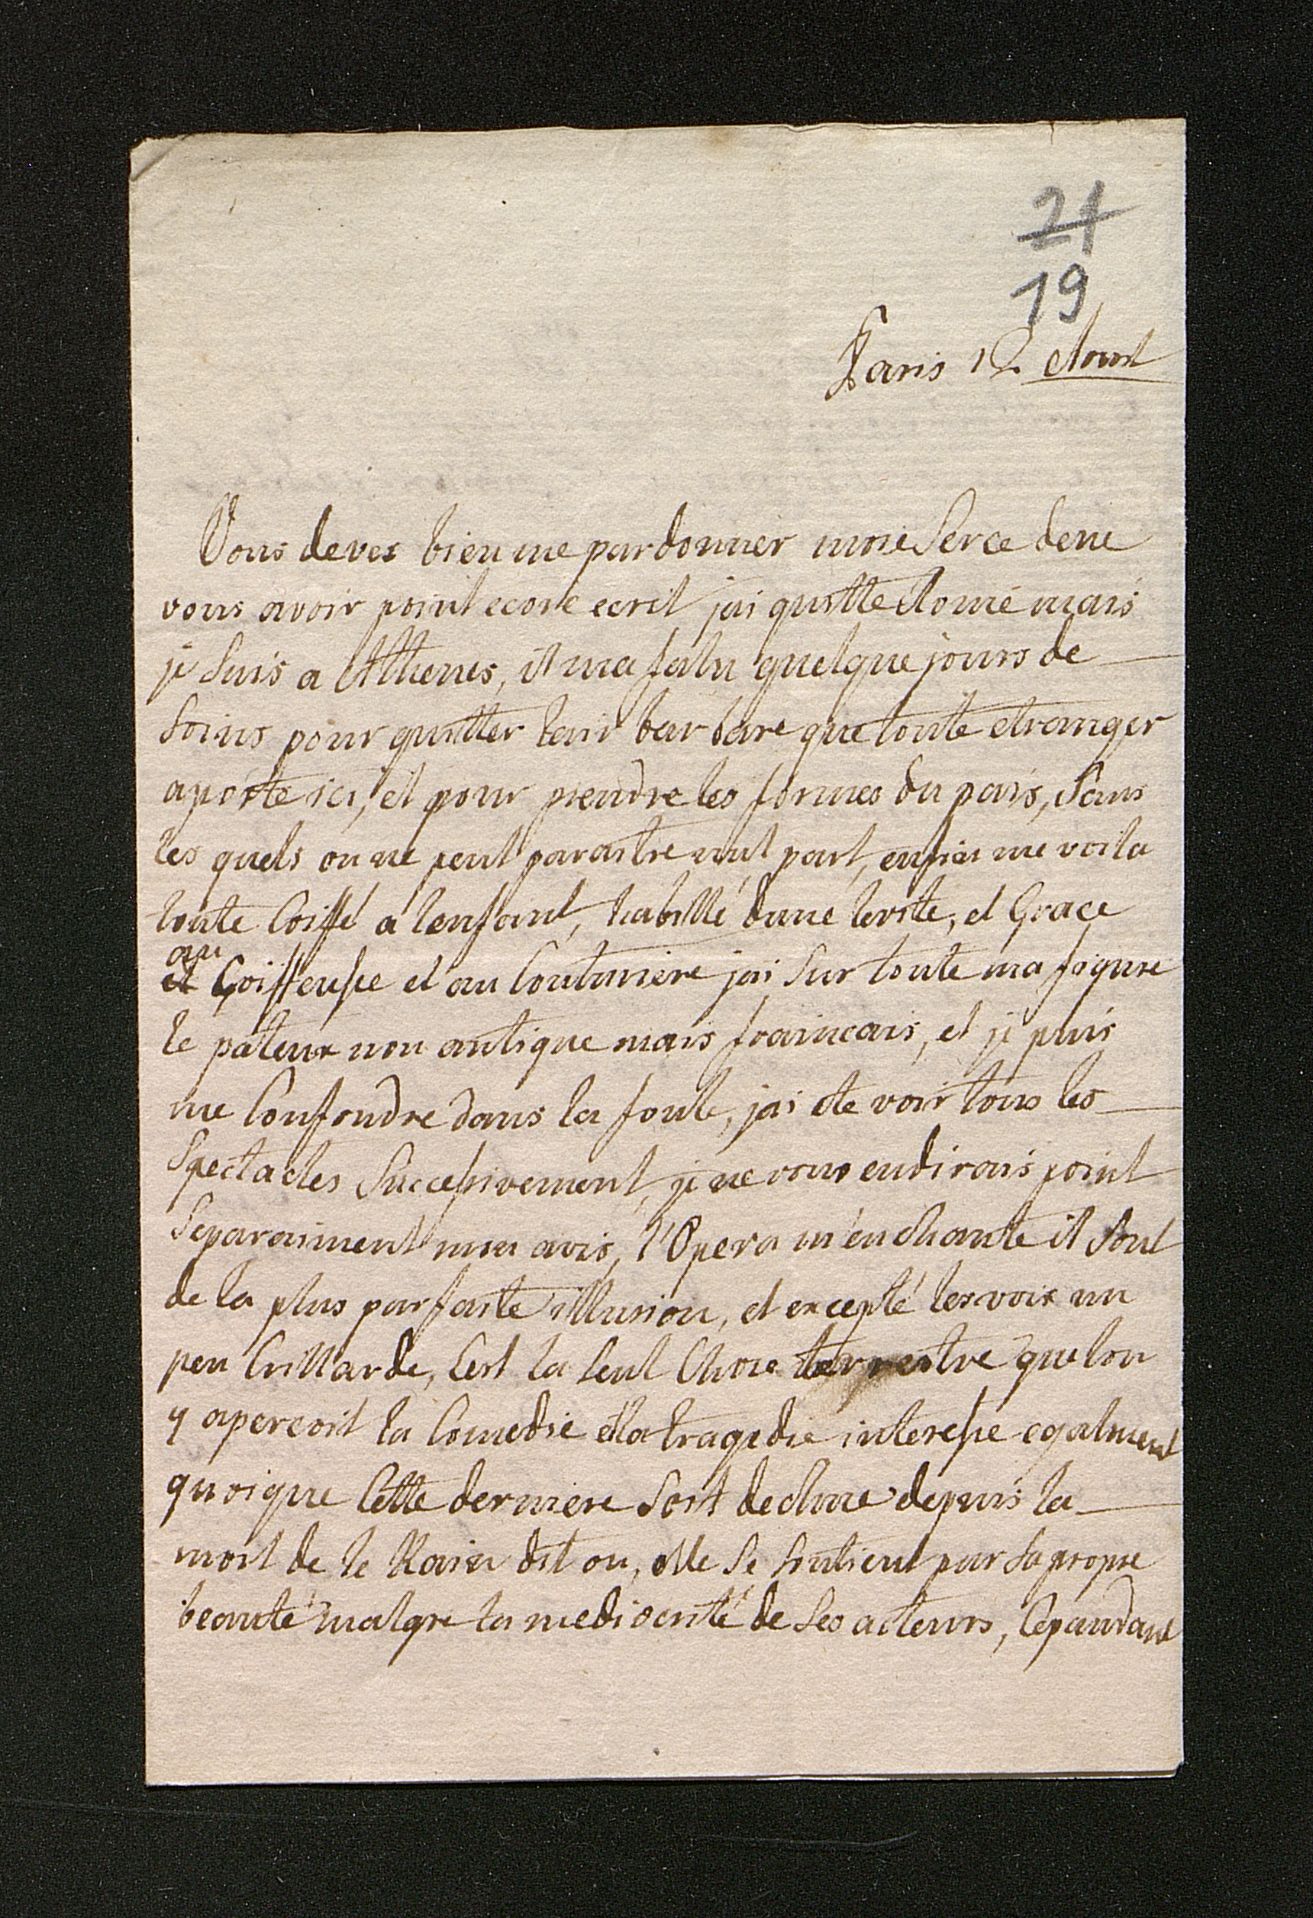 21
19
Paris 12 Aoust
Vous deves bien me pardonner mon Serce de ne
vous avoir point ecore ecrit jai quitte Rome mais
je suis a Athenes, il ma falu quelque jours de
soins pour quitter lair barbare que toute etranger
aporte ici, et pour prendre les formes du pais, Sans
les quels on ne peut paraitre nul part, enfin me voila
toute Coiffé a lenfant, habillé dune levite, et Grace
au
et Coiffeuse et au Couturiere jai sur toute ma figure
le pateux non antique mais fraincais, et je puis
me Confondre dans la foule, jai ete voir tous les
Spectacles Successivement, je ne vous endirais point
Separaiment mon avis, l'Opera m'enchante il sont
de la plus parfaite illusion, et excepté les voix un
peu Crillarde, Cest la seul Chose terrestre que lon
y apercoit la Comedie et la tragedie interesse egalment
quoique Cette derniere soit dechue depuis la
mort de le Kain dit on, elle Se soutient par sa propre
beauté malgre la mediocrité de Ses acteurs, Cepandant